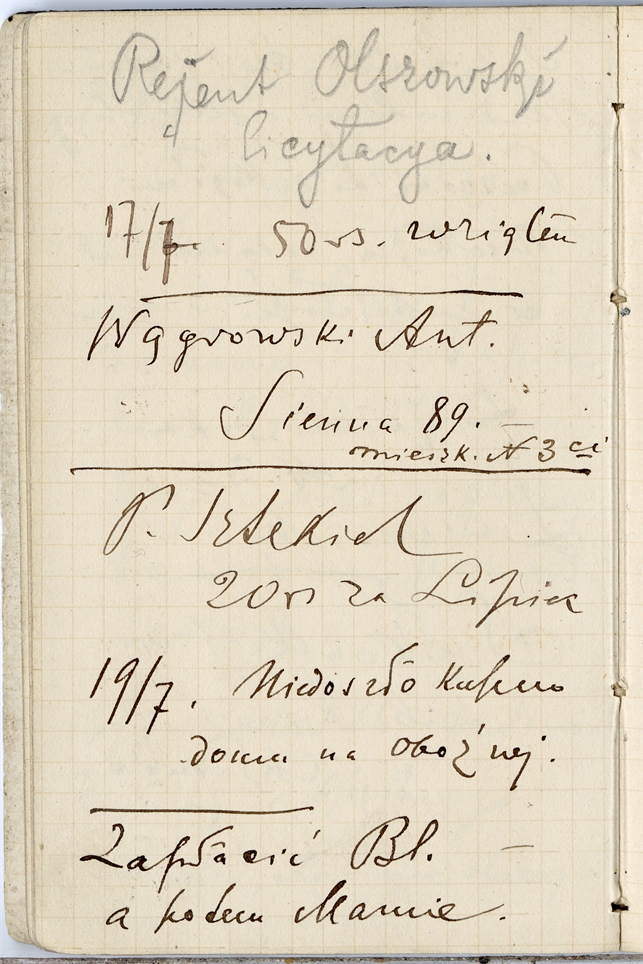 Rejent Olszowski
licytacya.
17/7. 50 rs. wziąłem
Wągrowski Ant.
Sienna 89. –
mieszk. N 3 ci
P.
20 rs za Lipiec
19/7. Niedoszło kupno
domu na Oboźnej.
Zapłacić Bł. –
a potem Mamie.